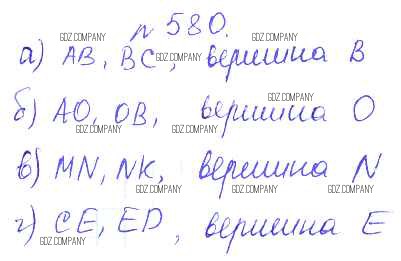 № 580.
а) AB, BC, вершина B
б) AO, OB, вершина O
в) MN, NK, вершина N
г) CE, ED, вершина E
GDZ.COMPANY
GDZ.COMPANY
GDZ.COMPANY
GDZ.COMPANY
GDZ.COMPANY
GDZ.COMPANY
GDZ.COMPANY
GDZ.COMPANY
GDZ.COMPANY
GDZ.COMPANY
GDZ.COMPANY